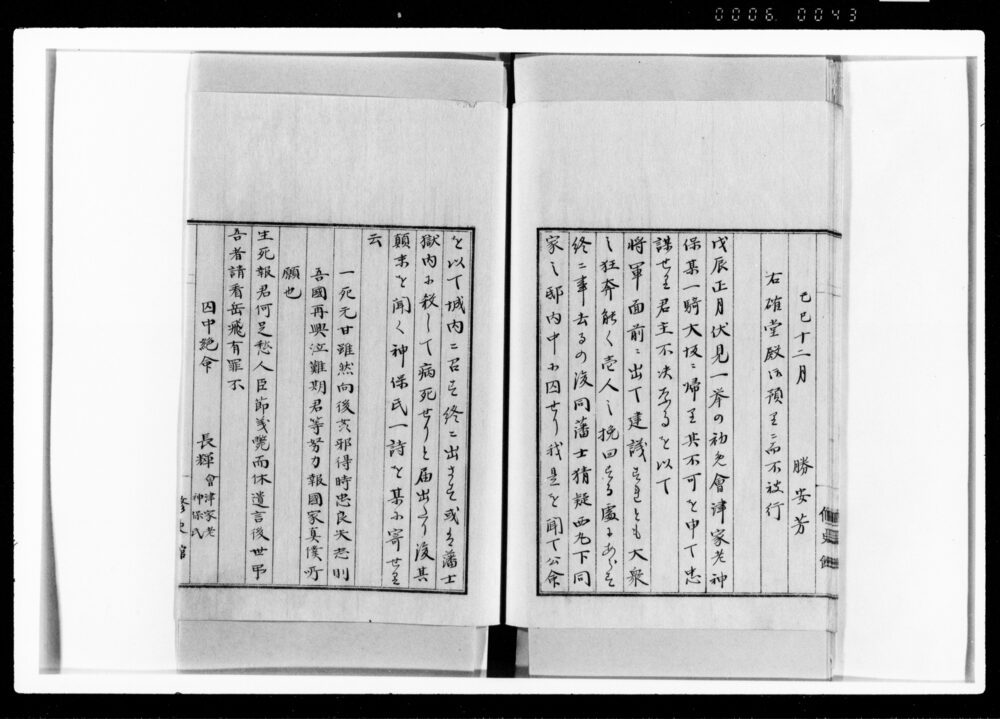 0006 0043
己巳十二月　勝安芳
右確堂殿御預リニ而不被行
戊辰正月伏見一挙の初免會津家老神
保某一騎大坂ニ帰リ其不可を申て忠
諫せり君主不決なるを以て
将軍面前ニ出て建議すれとも大衆
之狂奔能く壱人之挽回する處にあらす
終ニ事去るの後同藩士猜疑西丸下同
家之邸内中に囚せり我是を聞て公命
を以て城内ニ召す終ニ出さす或は藩士
獄内に殺して病死せりと届出たり後其
顛末を聞く神保氏一詩を某に寄せり
云
一死元甘雖然向後奸邪得時忠良失志則
吾國再興泣難期君等努力報國家真僕所
願也
生死報君何足愁人臣節義斃而休遺言後世弔
吾者請看岳飛有罪不
囚中絶命　長輝 會津家老 神保氏
修史館